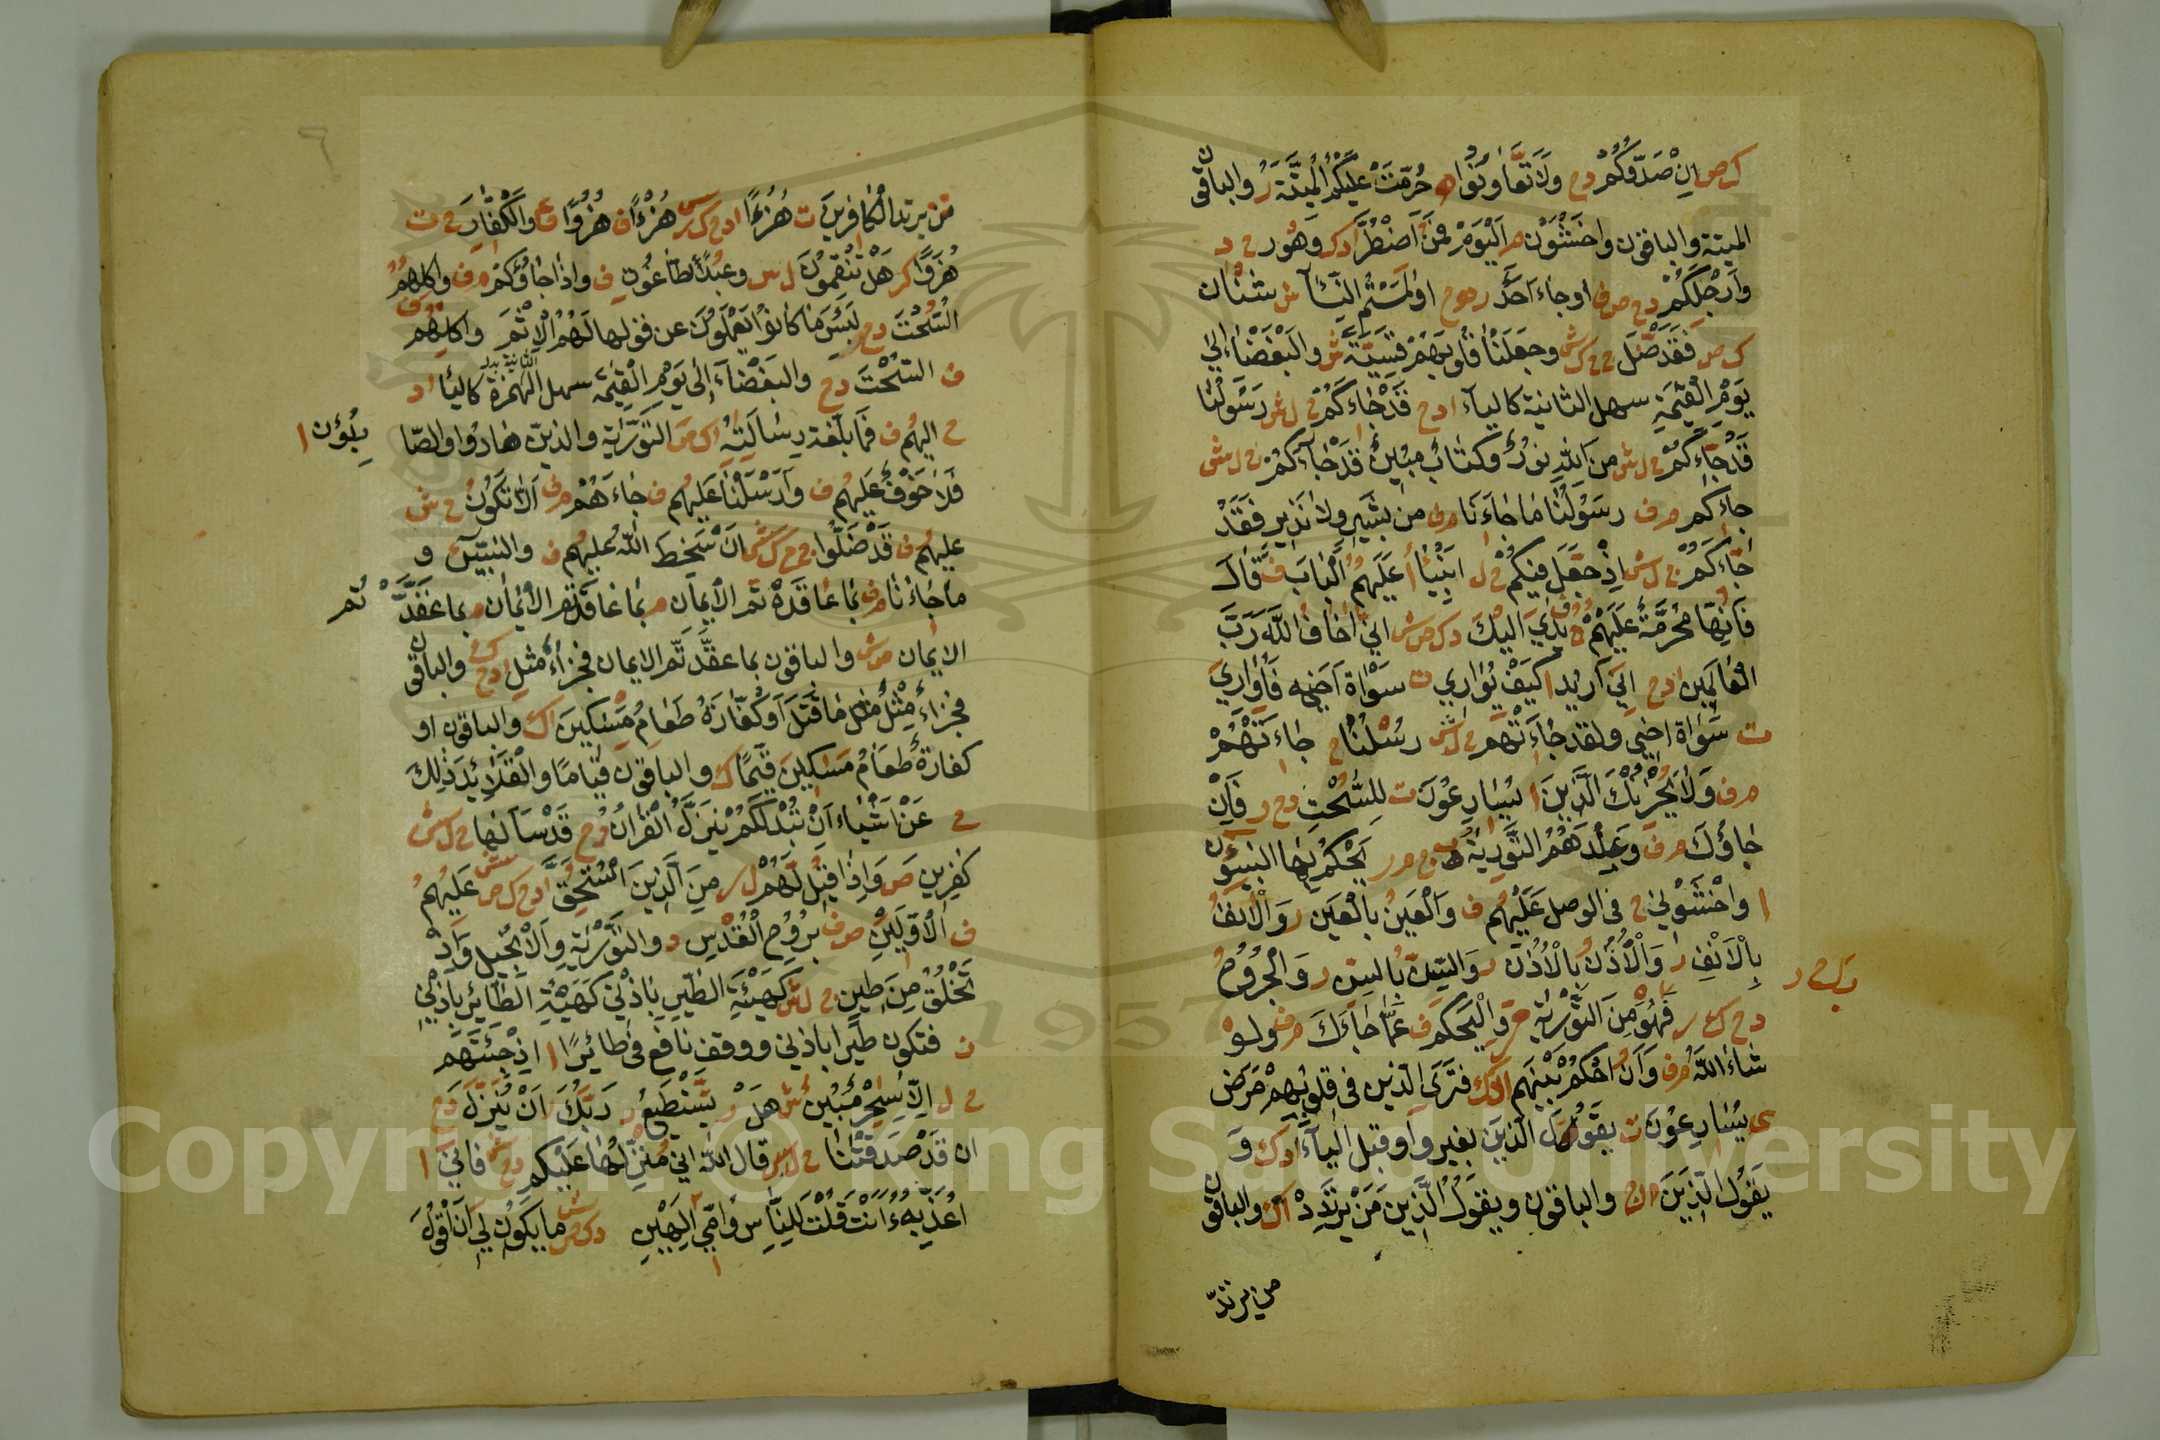 ك ص اِنْ صَدّوكُمْ د ح ولَا تَّعَاوَنُوا ه حُرِّمَتْ عَلَيْكُمُ الْمَيْتَةُ ر والباقون
الميتة والباقون واخشَوْنِ م اليَوْمَ فمَنُ اضْطُرَّ ا د ك ر وهُو ر ح د
وَاَرْجُلِكُمْ د ح ص ف اوجاءَ اَحَدٌ ر ه و ح اولَمَسْتُمُ النِّسَآ ش شَنْاٰنُ
ك ص فَقَدْ ضَّلَ ح ح ك ش وجعَلْنٰا قُلُوبَهُمْ قَسِيَّةً ش والبَغْضٰاءَ اِلىٰ
يَوْمِ القِيٰمَةِ سهل الثانية كالياء ا د ح قَدْ جٰاءَكُمْ ح ل ش رَسُولُنٰا
قَدْ جٰاءكُمْ ح ل ش منَ اللهِ نورٌ وكتٰابٌ مبينٌ قَدْ جٰآءكُمْ ح ل ش
جاءكم م ف رسُولُنٰا مٰا جٰاءَنَا م ف من بشيرٍ ولا نذيرٍ فَقَدْ
جٰاءَكُمْ ح ل ش اِذْ جَعَلَ فيكُمْ ح ل اَنْبِيٰٓا ا عَلَيْهِمُ الْبٰابَ ف قٰالَ
فَاِنّهٰا مُحَرَّمَةٌ عَلَيْهُمْ ف يَدِيْ اليْكَ د ك ص ش اِنّيَ اَخافُ اللّٰهَ رَبَّ
الْعٰالَمِينَ ا د ح اِنّيَ اُريدُ ا كيْفَ يُوٰارِي ت سَوْاٰةَ اَخيهِ فَاُوٰارِيَ
ت سَوْاٰةَ اخِي ولقد جٰاءَتْهُمْ ح ل ش رسُلْنٰا ح جٰاءَتْهُمْ
م ف وَلَا يُحْزِنْكَ الَّذِينَ ا يُسٰارِعُونَ ت لِلسُّحُتِ د ح ر فَاِنْ
جٰاؤُكَ م ف وَعِنْدَهُمُ التَّوْرٰيةُ م ر يَحْكُمُ بِهٰا النبيؤن
ا واخْشَوْنِي ح فى الوصل عَلَيْهُم ف وَالْعَيْنُ بِالْعَيْنِ ر وَالْاَنْفُ
بِالْاَنْفِ ر وَالْاُذُنُ بِالْاُذُنِ ر وَالسِّنُّ بالسِّنِّ ر وَالْجُرُوحُ
د ح ك ر فَهْوَ مِنَ التَّوْرٰيةِ م وَلْيَحْكُم ف عَمّٰا جٰاءَكَ م ف ولو
شٰاءَ اللّٰهُ م ف وَاَنُ احْكُمْ بَيْنَهُم ا د ك فترَى الذين فى قلوبهم مَرَضٌ
ى يُسٰارِعُونَ ت يقُولُ الّذينَ بغير واو قبل اليآء ا د ك وَ
يَقُولَ الّذِينَ ح والباقون ويقولُ الّذِينَ مَنْ يَرْتَدِدْ ا ك والباقون
من يرتدّ
من يرتد الكافرين ت هُزُءًا ا د ح ك ر س هُزْءًا ف هُزُوًا ع والكفّارِ ح ت
هُزوًا ك ر هَلْ تَنْقِمُونَ ل س وعَبُدَ الطاغُوتِ ف واذا جٰاؤُكم م ف واكلهمُ
السُّحُتَ د ح ر لَبِئْسَ مٰا كٰانوا يَعْمَلُونَ عن قولها لَهُمُ الْاِثْمَ واكلهُمُ
ف السُّحْتَ د ح والبَغْضٰآءَ اِلىٰ يَوْمِ القِيٰمَة سهل الهمزة الثانية كالياء ا د
ح اليهُم ف فَمٰا بلّغتَ رِسٰالَتِهِ ا ك ص التَّوْرٰية والذينَ هٰادُوا والصّا
بِئُونَ ا
فَلَا خَوْفٌ عَليهُم ف وَاَرْسَلْنٰا عَلَيهُم ف جٰاءَهُمْ م ف اَلّا تَكُونُ ح ش
عليهُم ف قَدْ ضَّلُّوا ح ح ك ش اَنْ سَخِطَ اللّٰه عليهُم ف والنبيّٓ ء و
مٰا جٰاءَنٰا م ف بما عٰاقَدْتُم الأيمان م بمٰا عٰاقَدْتم الأيمان م بما عَقَدَّ تُم
الايمٰان م ش والباقون بما عقَّدتّم الايمان فجزاءُ مثلِ ا د ح ك والباقون
فجزاءٌ مِثْلُ مٰا قَتَلَ اَو كَفّٰارَةُ طَعٰامِ مَسٰاكِينَ ا ك والباقون او
كفارةٌ طَعٰامُ مَسٰاكِينَ قِيَمًا ك والباقون قيٰامًا والْقَلٰائِدَ ذٰلِكَ
ح عَنْ اشْيٰاءَ اِنْ تُبْدَ لَكُمْ يُنْزَلُ الْقُرٰانُ د ح قَدْ سَاَلَهٰا ح ل ش
كٰفِرين ص وَاِذٰا قِيلَ لَهُمْ ل ر مِنَ الّذينَ اسْتُحِقَّ ا د ح ك ص ش عَلَيهُمُ
ف الْاَوَّلِينَ ص ف بِرُوحِ الْقُدْسِ د والتَّوْرٰيةَ وَالْاِنْجيل وَاِذْ
تَخْلُقُ مِنَ طينٍ ح ل ش كَهَيْئَةِ الطّيرِ بِاِذْنى كَهَيْئَةِ الطّائِرِ بِاِذْنِي
ن فتكون طيرا باذني ووقف نافع فى طائِرًا ا اِذْ جِئْتَهُم
ح ل اِلّا سٰحِرٌ مُبينٌ ش هَلْ تَسْتَطيعُ ر رَبَّكَ ر اَنْ يُنْزِلَ د ح
ان قَدْ صَدَقْتَنٰا ح ل ش قال اللّٰه اني مُنْزِلُهٰا عَلَيْكم د ح ش فَاِنّيَ ا
اُعَذِّبُهُ ءَاَنْتَ قُلْتَ لِلنّٰاسِ وَاُمِّيَ اِلٰهَيْنِ د ك ص ش ما يكُونُ لِي اَنْ اَقُولَ